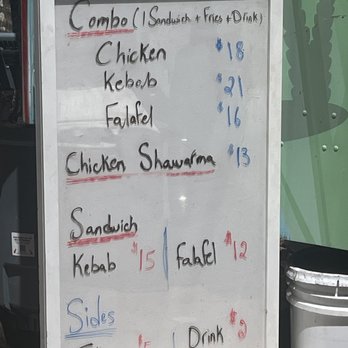 Combo (1 Sandwich + Fries + Drink)
Chicken $18
Kebab $21
Falafel $16
Chicken Shawarma $13
Sandwich
Kebab $15 | Falafel $12
Sides
Drink $2